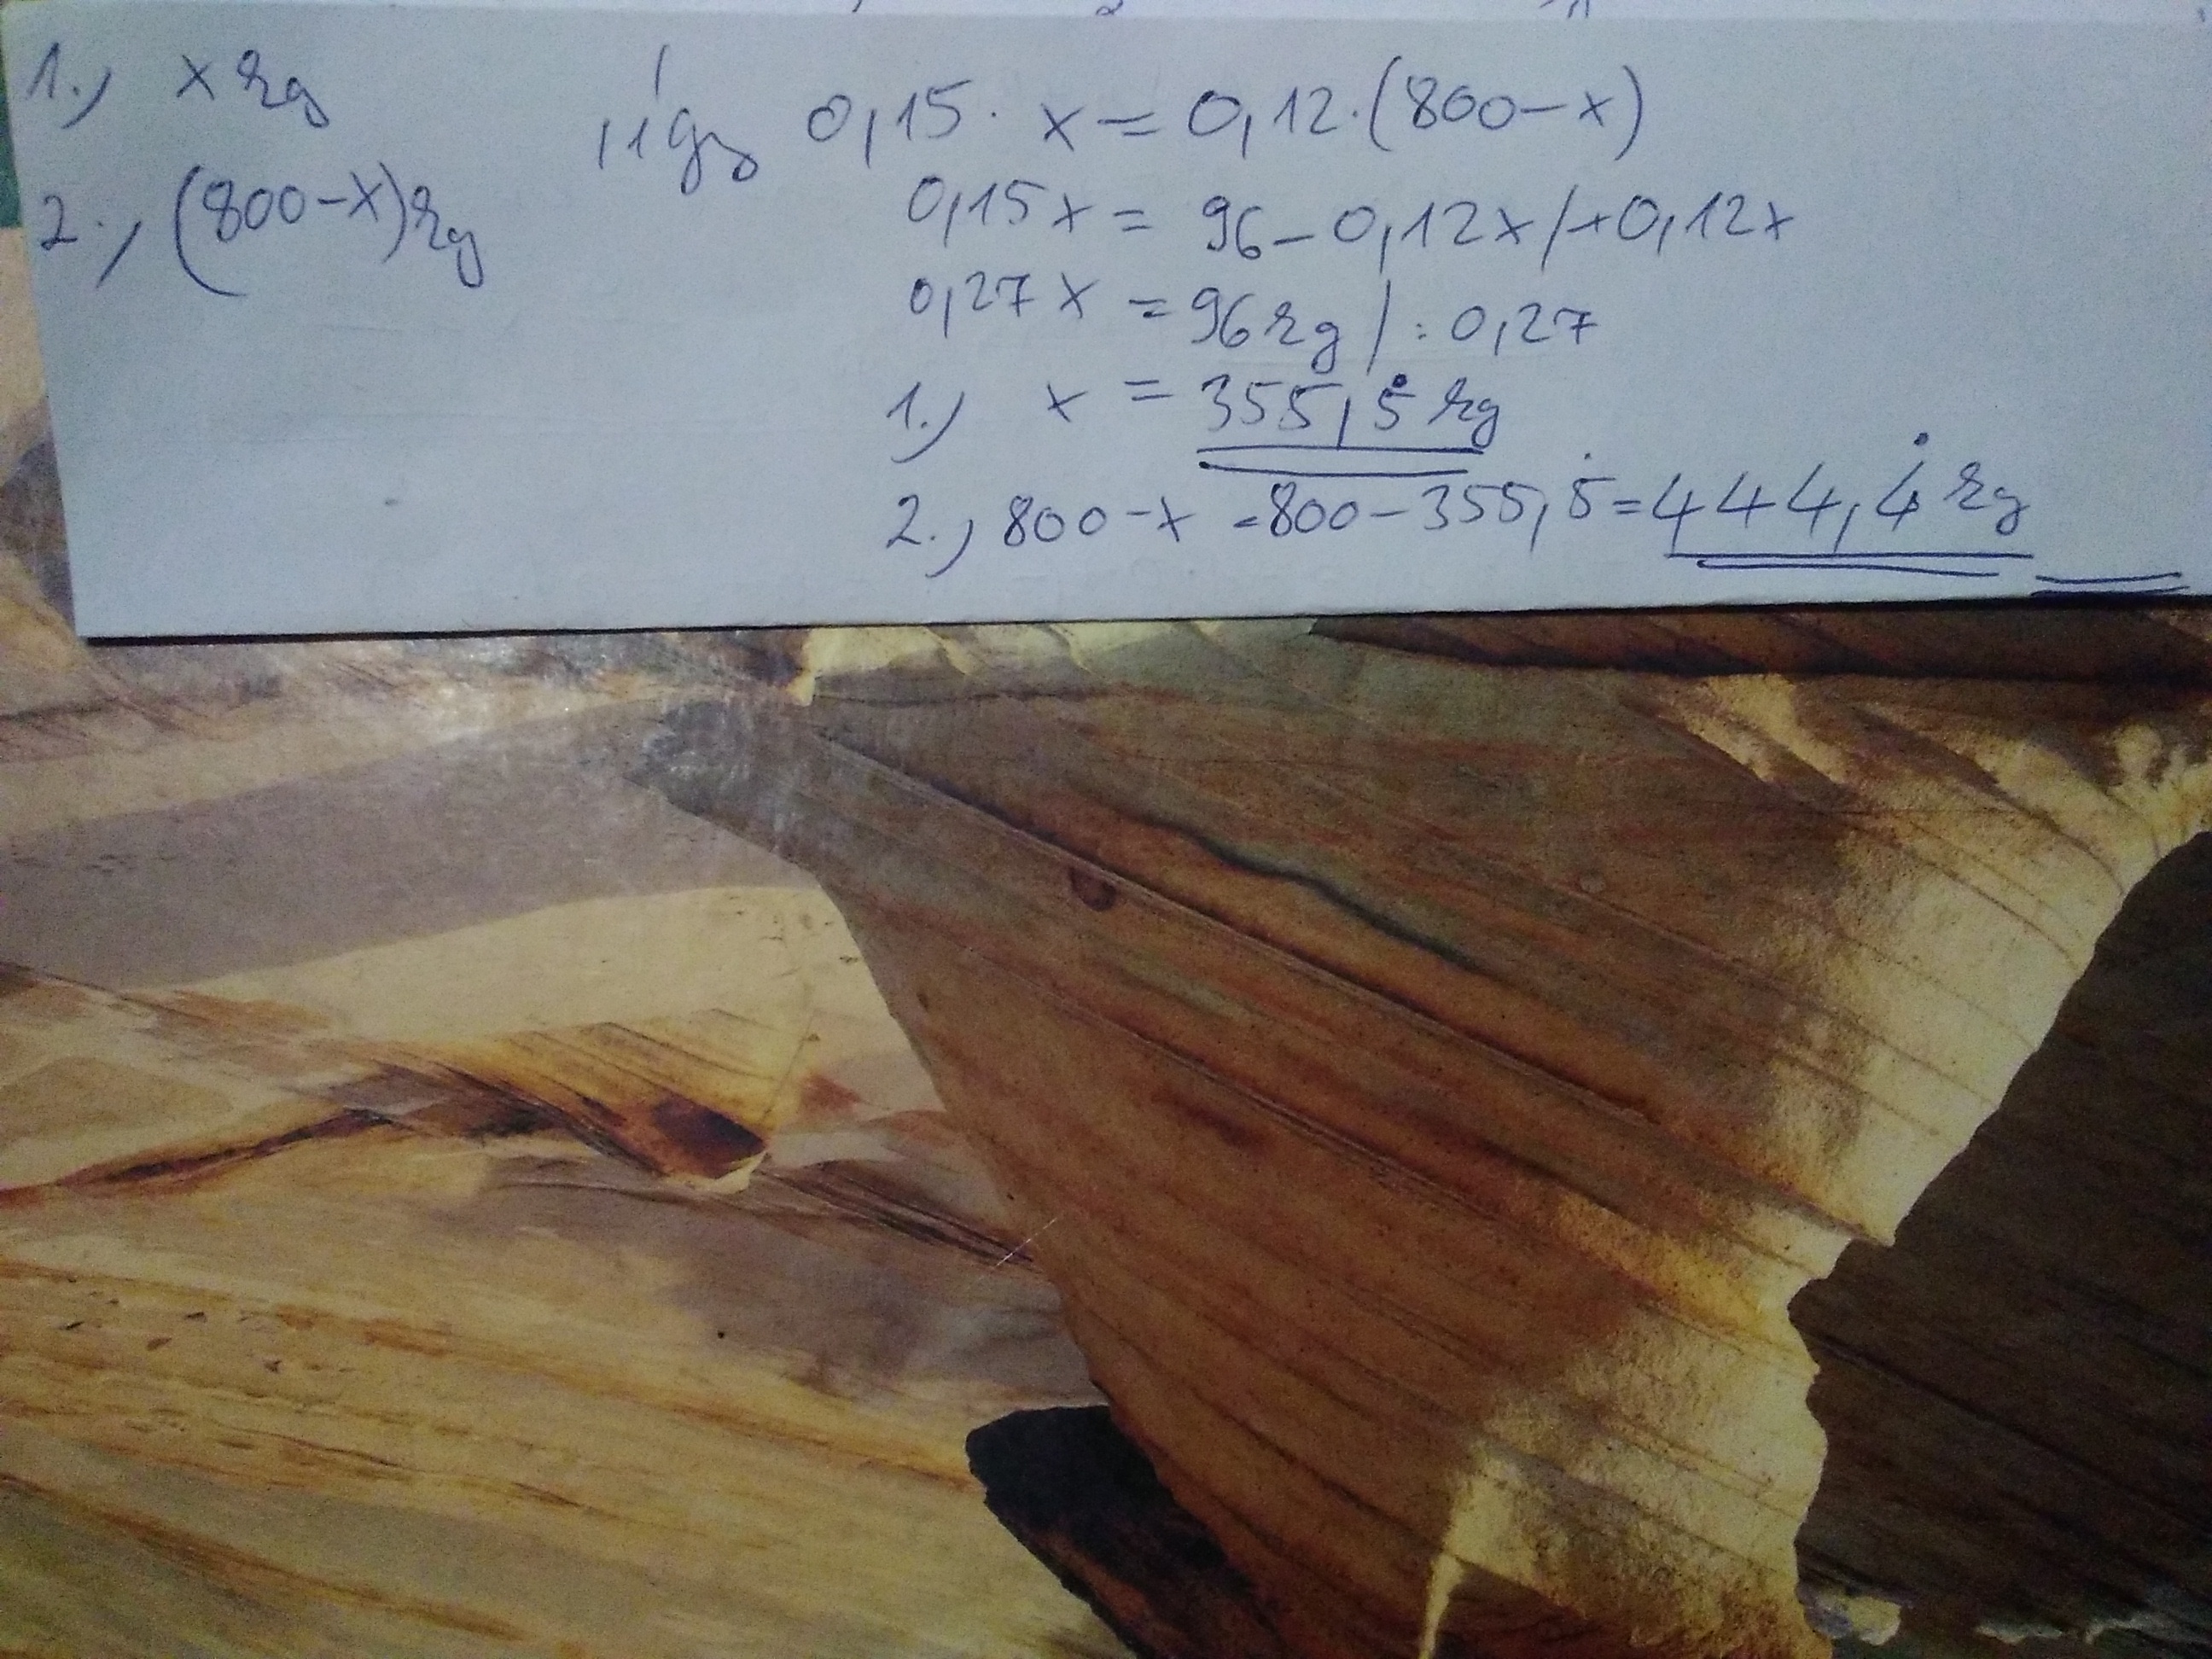 1., x kg
2., (800-x) kg
Így 0,15 · x = 0,12 · (800-x)
0,15x = 96 - 0,12x /+0,12x
0,27x = 96 kg / : 0,27
1.) x = 355,5̇ kg
2., 800-x = 800 - 355,5̇ = 444,4̇ kg